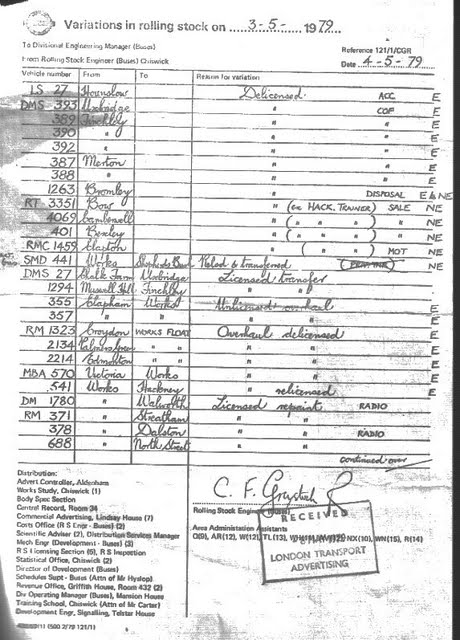 Variations in rolling stock on 3-5- 1979
To Divisional Engineering Manager (Buses)
Reference 121/1/CGR
From Rolling Stock Engineer (Buses) Chiswick
Date 4-5-79
Vehicle number From To Reason for variation
LS 27 Hounslow Delicensed ACC E
DMS 393 Uxbridge " COF E
389 Finchley " E
390 " " E
392 " " E
387 Merton " E
388 " " E
1263 Bromley " DISPOSAL E & NE
RT 3351 Bow " (ex HACK. TRAINER) SALE NE
4069 Camberwell " ( " " ) " NE
401 Bexley " ( " " ) " NE
RMC 1459 Clapton " ( " ) MOT NE
SMD 441 Works Shepherds Bush Relicd & transferred NE
DMS 27 Chalk Farm Uxbridge Licensed transfer
1294 Muswell Hill Finchley " "
355 Clapham Works Unlicensed overhaul E
357 " " " " E
RM 1323 Croydon WORKS FLOAT Overhaul delicensed E
2134 Palmers Green " " " " E
2214 Edmonton " " " " E
MBA 570 Victoria Works " " E
541 Works Hackney " relicensed E
DM 1780 " Walworth Licensed repaint RADIO
RM 371 " Streatham " "
378 " Dalston " " RADIO
688 " North Street " "
continued over
Distribution:
Advert Controller, Aldenham
Works Study, Chiswick (1)
Body Spec Section
Central Record, Room 34
Commercial Advertising, Lindsay House (7)
Costs Office (R S Engr - Buses) (2)
Scientific Adviser (2), Distribution Services Manager
Mech Engr (Development - Buses) (3)
R S Licensing Section (5), R S Inspection
Statistical Office, Chiswick (2)
Director of Development (Buses)
Schedules Supt - Buses (Attn of Mr Hyslop)
Revenue Office, Griffith House, Room 432 (2)
Div Operating Manager (Buses), Mansion House
Training School, Chiswick (Attn of Mr Carter)
Development Engr, Signalling, Telstar House
C. F.
Rolling Stock Engineer (Buses)
Area Administration Assistants
Q(9), AR(12), W(12), TL(13), NX(10), WN(15), R(14)
RECEIVED
MAY 1979
LONDON TRANSPORT
ADVERTISING
(500 2/79 121/1)